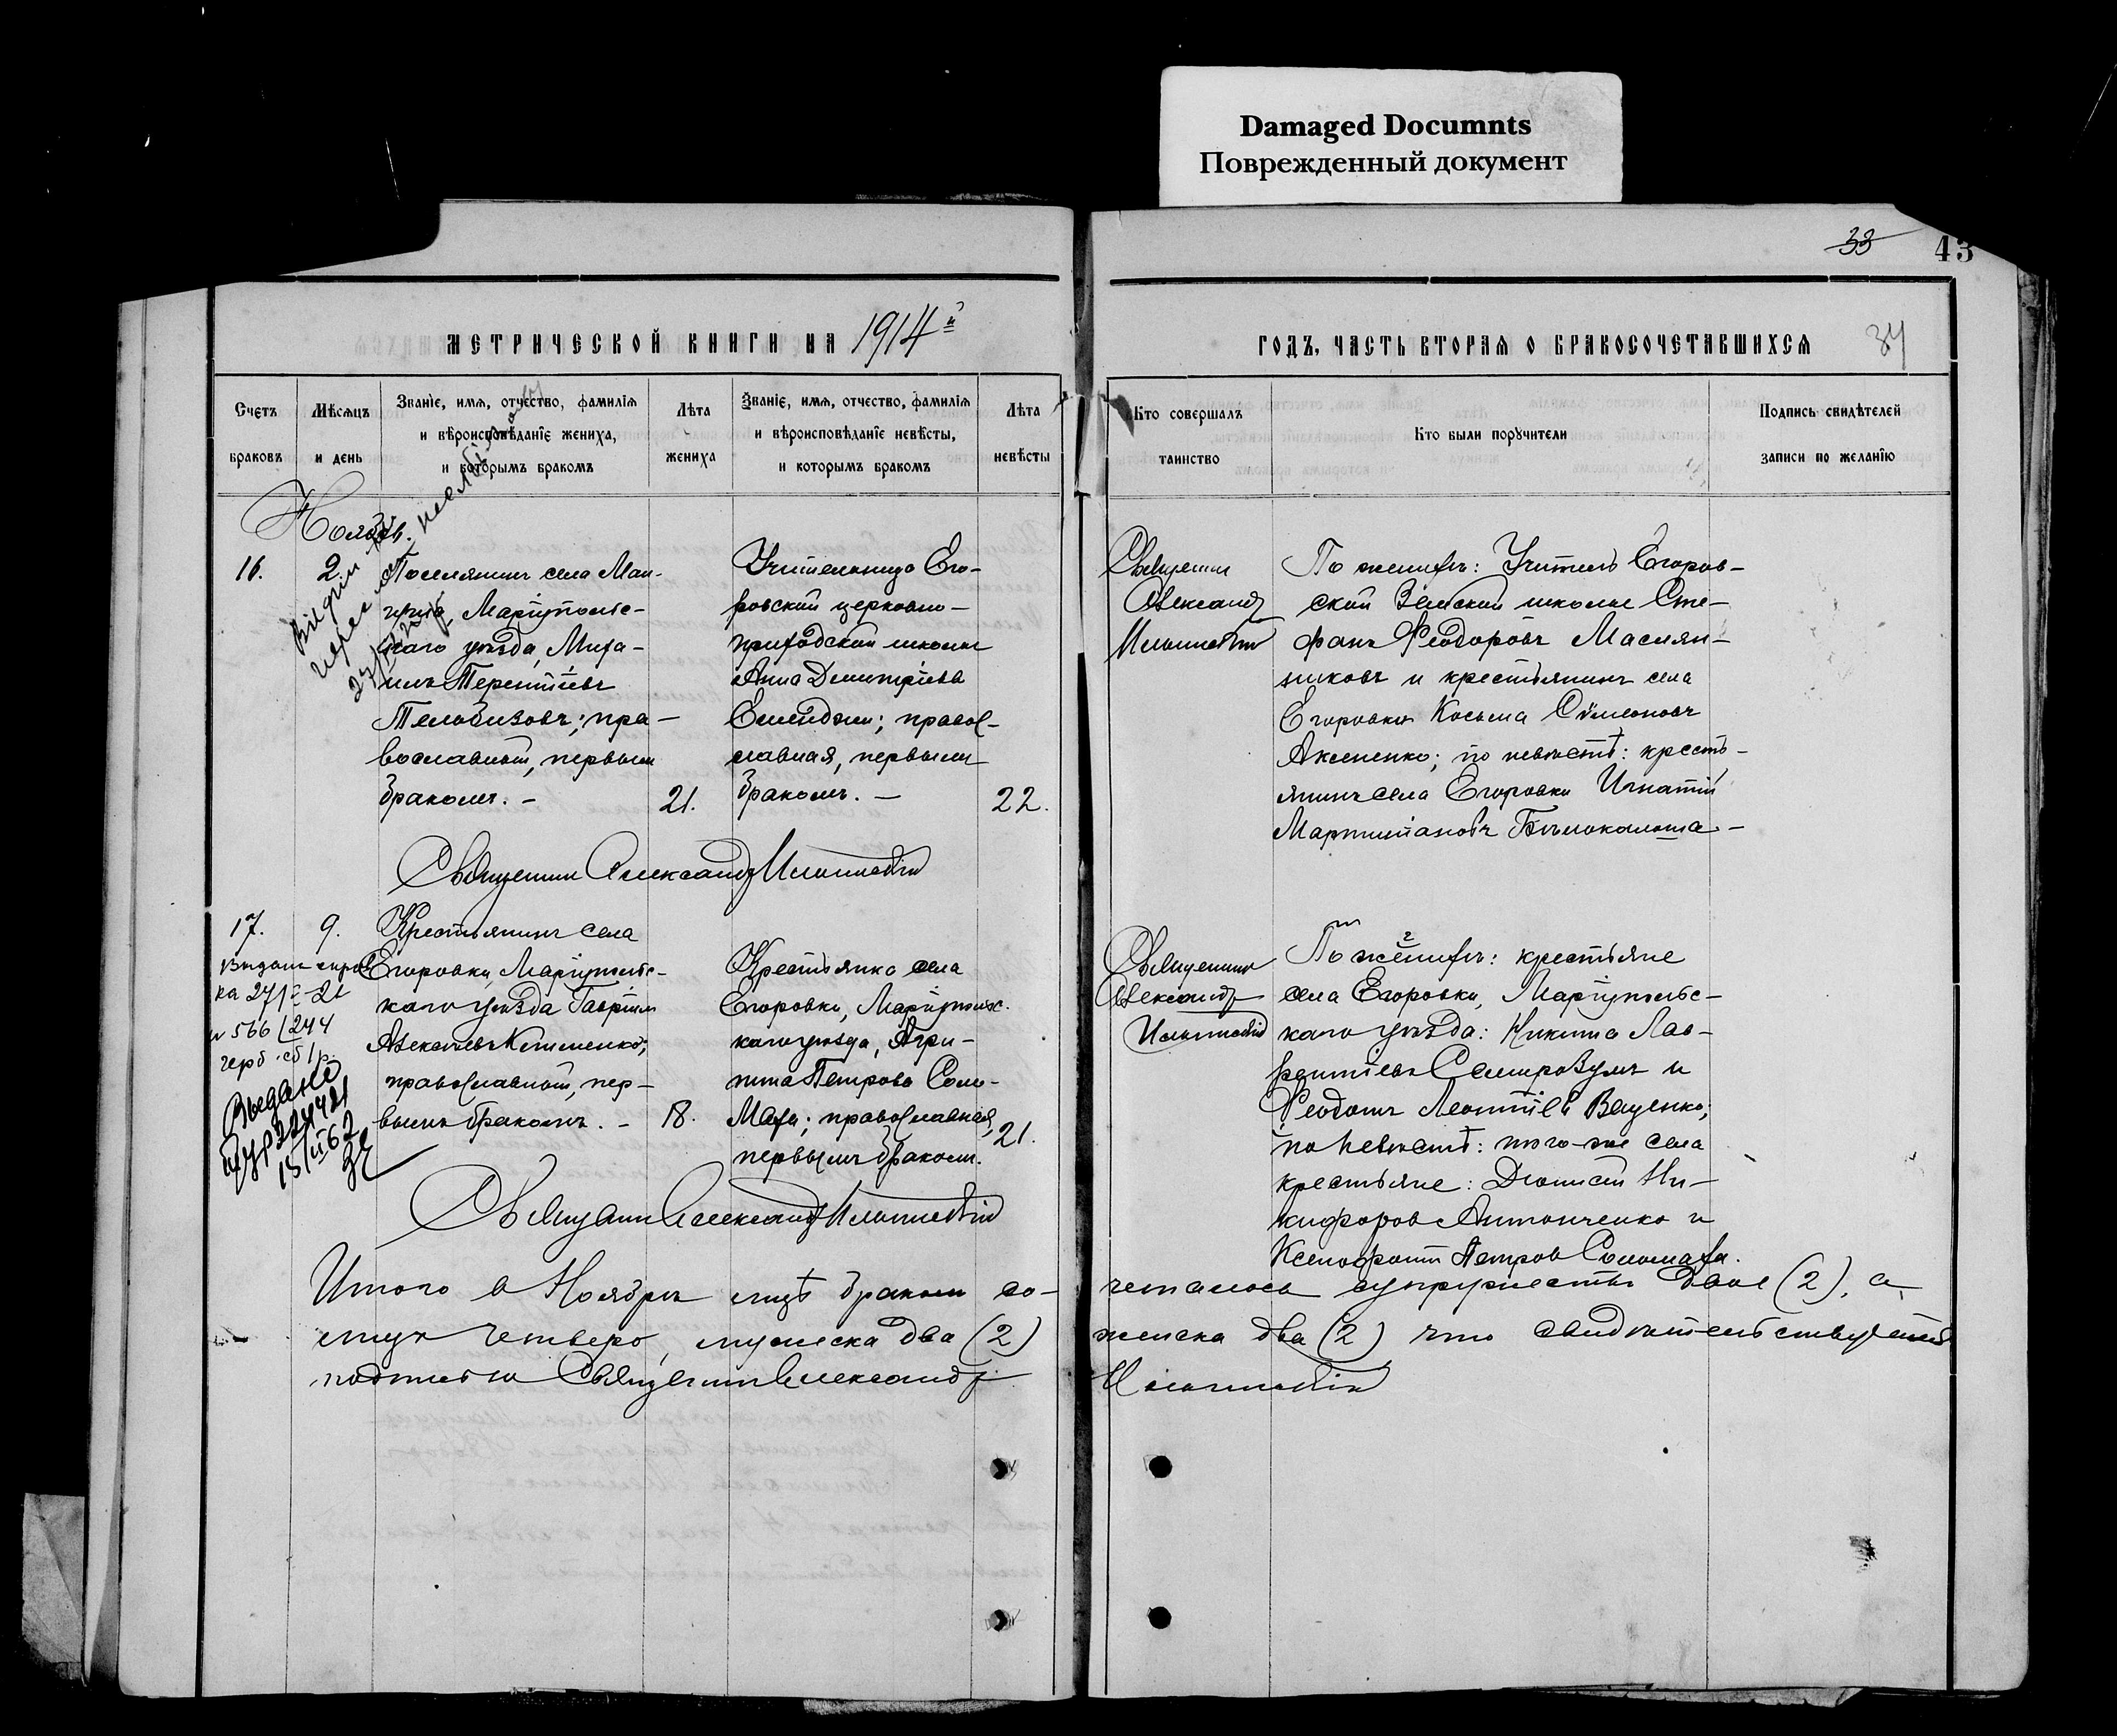 Damaged Documnts
Поврежденный документ
33
43
МЕТРИЧЕСКОЙ КНИГИ НА 1914й
ГОДЪ, ЧАСТЬ ВТОРАЯ О БРАКОСОЧЕТАВШИХСЯ
34
Счетъ браковъ
Мѣсяцъ и день
Званіе, имя, отчество, фамилія
и вѣроисповѣданіе жениха,
и которымъ бракомъ
Лѣта жениха
Званіе, имя, отчество, фамилія
и вѣроисповѣданіе невѣсты,
и которымъ бракомъ
Лѣта невѣсты
Кто совершалъ таинство
Кто были поручители
Подпись свидѣтелей
записи по желанію
Ноябрь.
16.
2.
Поселянинъ села Ман-
Маріупольс-
каго уѣзда, Миха-
илъ Терентіевъ
пра-
вославный, первымъ
бракомъ. —
21.
Учительница Его-
ровской церковно-
приходской школы
Анна Димитріева
правос-
лавная, первымъ
бракомъ. —
22.
Священникъ
Александръ
По женихѣ: Учитель Егоров-
ской Земской школы Сте-
фанъ Феодоровъ Маслян-
никовъ и крестьянинъ села
Егоровки Косьма Сѵмеоновъ
Аксененко; по невѣстѣ: кресть-
янинъ села Егоровки Игнатій
Мартиніановъ
Священникъ Александръ
17.
9.
Крестьянинъ села
Егоровки, Маріупольс-
каго уѣзда Гавріилъ
Алексѣевъ
православный, пер-
вымъ бракомъ. —
18.
Крестьянка села
Егоровки, Маріупольс-
каго уѣзда, Агри-
пина Петрова Соло-
маха; православная,
первымъ бракомъ.
21.
Выдано
Священникъ
Александръ
По женихѣ: крестьяне
села Егоровки, Маріупольс-
каго уѣзда: Никита Лав-
рентіевъ Семирозумъ и
Феодотъ Леонтіевъ Ващенко;
по невѣстѣ: того-же села
крестьяне: Діонисій Ни-
кифоровъ Антонченко и
Ксенофонтъ Петровъ Соломаха.
Священникъ Александръ
Итого в Ноябрѣ мцѣ бракомъ со-
четалось супружествъ двое (2), а
лицъ четверо, мужеска два (2)
женска два (2) что свидѣтельствуетъ
подписью Священникъ Александръ